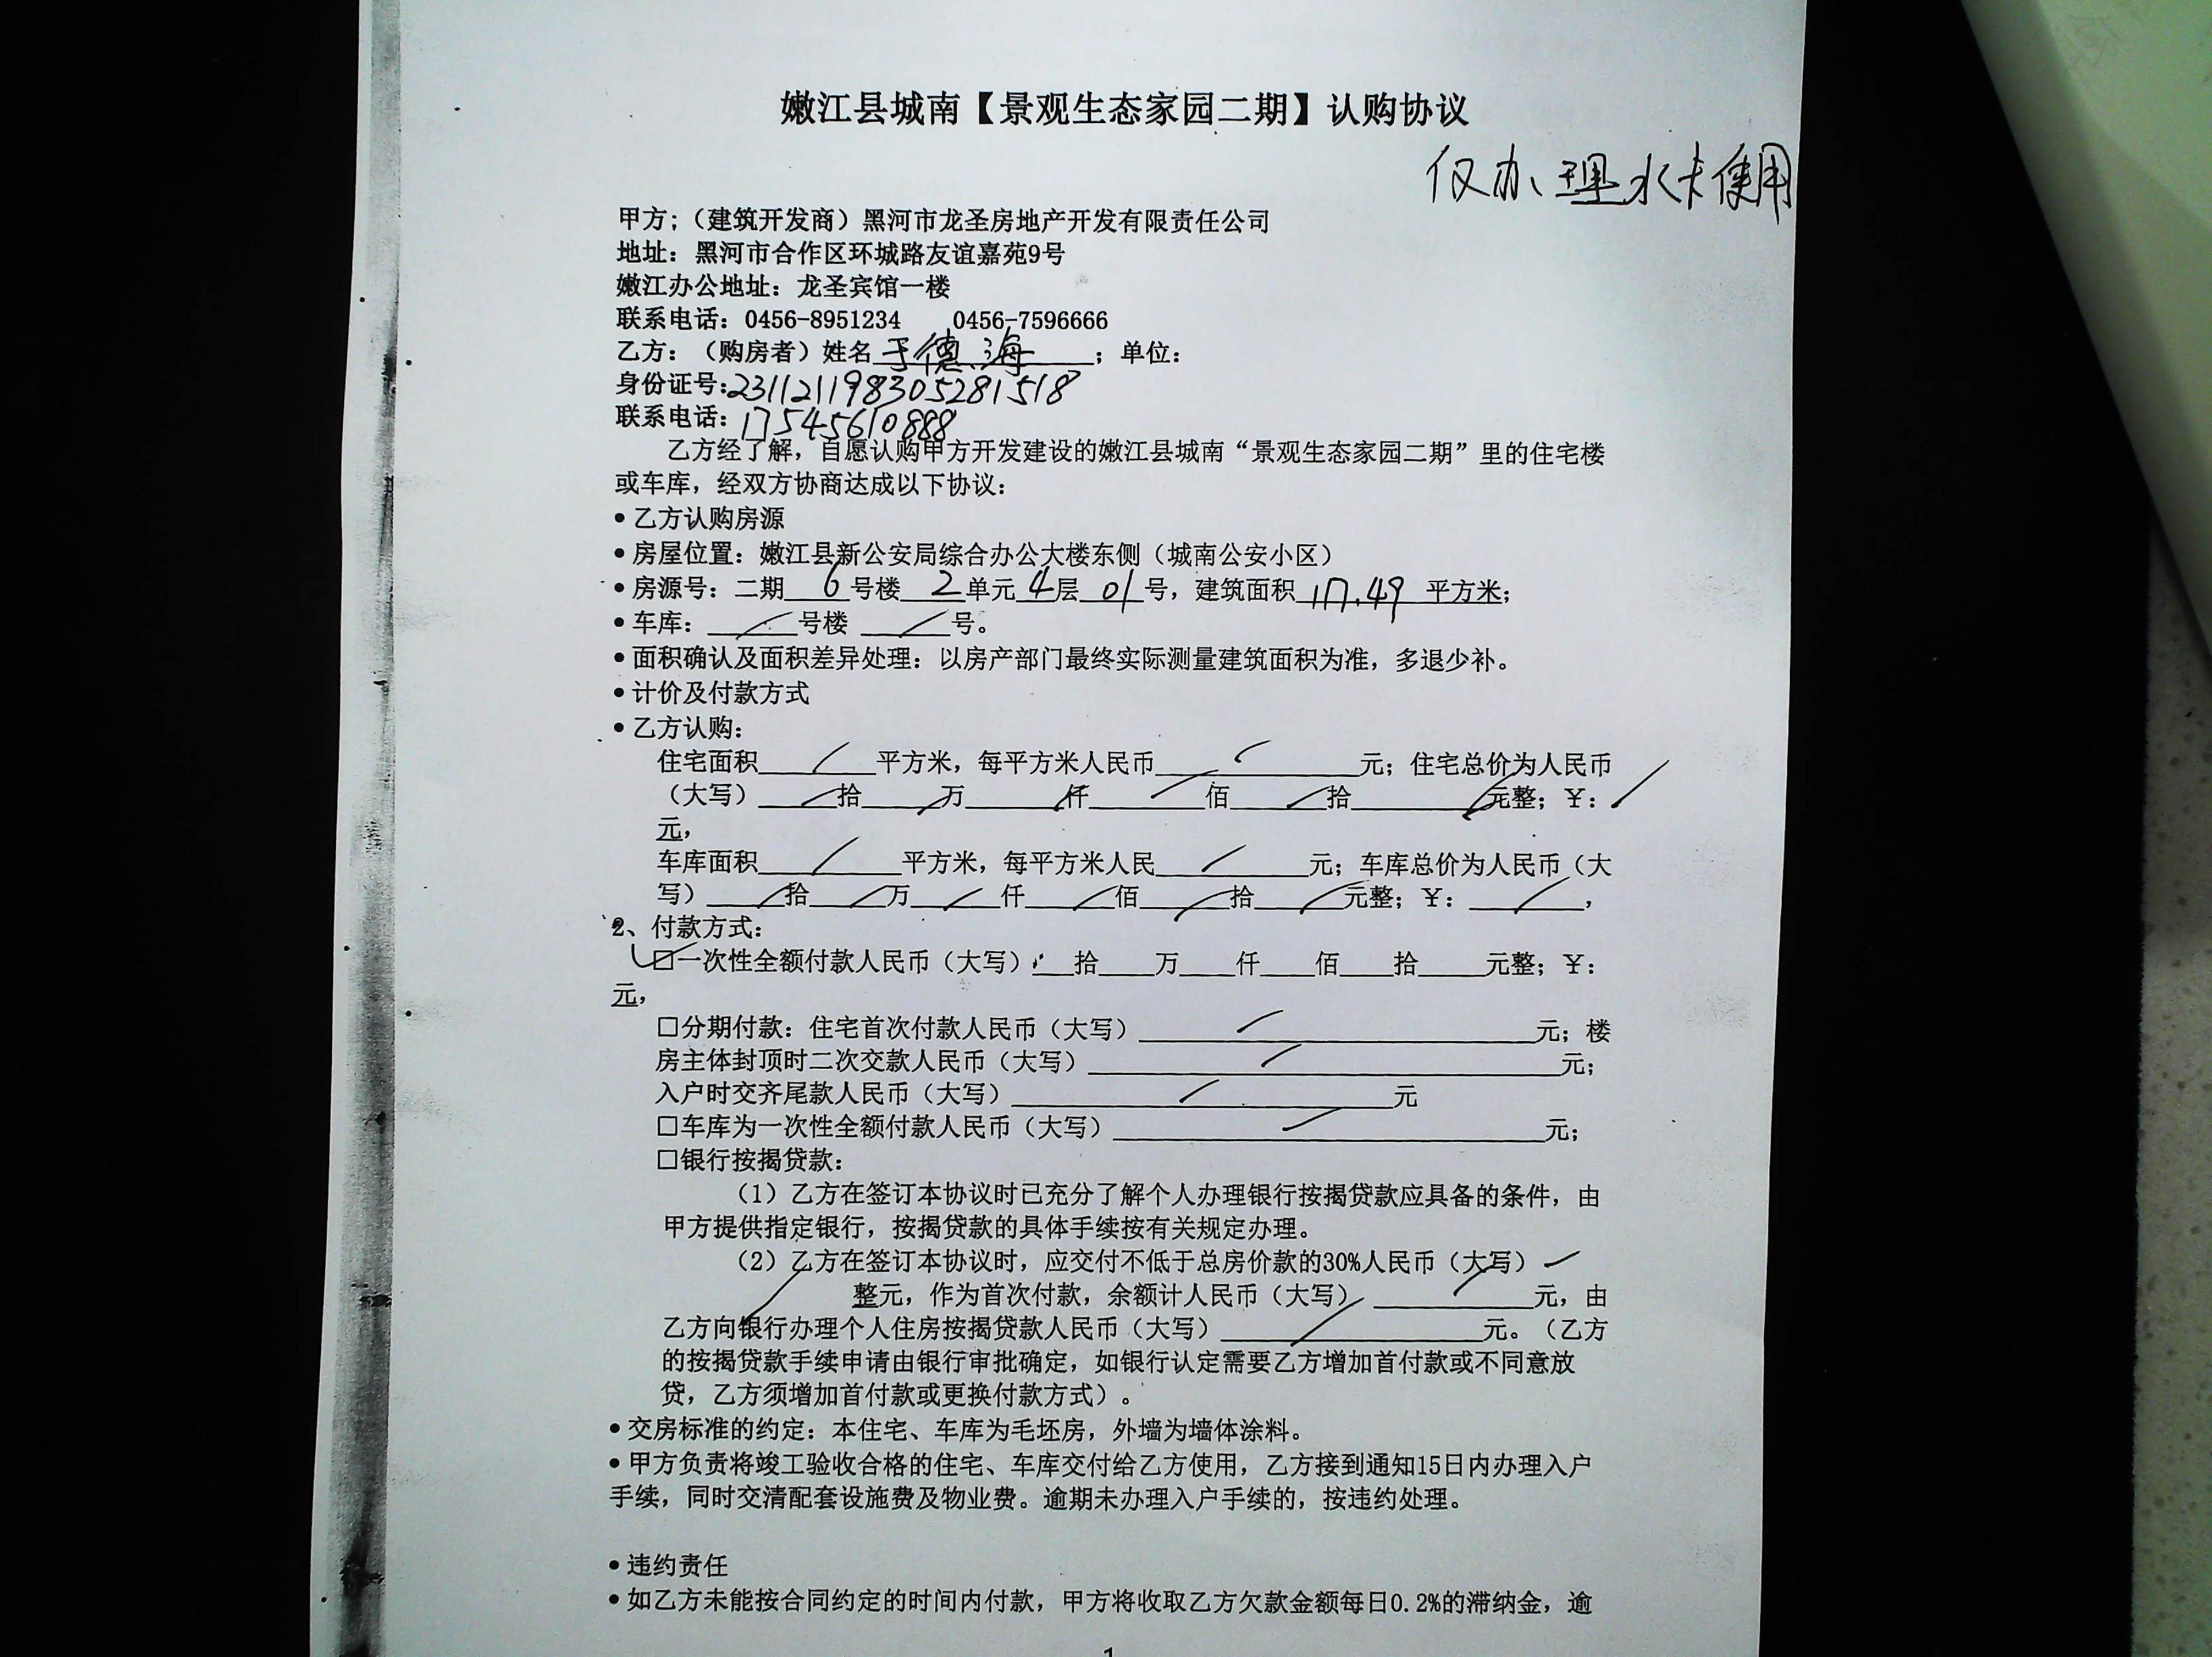 嫩江县城南【景观生态家园二期】认购协议
仅办理水卡使用
甲方;（建筑开发商）黑河市龙圣房地产开发有限责任公司
地址：黑河市合作区环城路友谊嘉苑9号
嫩江办公地址：龙圣宾馆一楼
联系电话：0456-8951234 0456-7596666
乙方：（购房者）姓名于德海；单位：
身份证号:231121198305281518
联系电话：17545610888
乙方经了解，自愿认购甲方开发建设的嫩江县城南“景观生态家园二期”里的住宅楼
或车库，经双方协商达成以下协议：
•乙方认购房源
•房屋位置：嫩江县新公安局综合办公大楼东侧（城南公安小区）
•房源号：二期 6 号楼 2 单元 4 层 01 号，建筑面积 117.49 平方米；
•车库：／号楼 ／号。
•面积确认及面积差异处理：以房产部门最终实际测量建筑面积为准，多退少补。
•计价及付款方式
•乙方认购：
住宅面积／平方米，每平方米人民币／元；住宅总价为人民币
（大写）／拾／万／仟／佰／拾／元整；￥：／
元，
车库面积／平方米，每平方米人民／元；车库总价为人民币（大
写）／拾／万／仟／佰／拾／元整；￥：／，
2、付款方式：
☑一次性全额付款人民币（大写）___拾___万___仟___佰___拾___元整；￥：
元，
□分期付款：住宅首次付款人民币（大写）／元；楼
房主体封顶时二次交款人民币（大写）／元；
入户时交齐尾款人民币（大写）／元
□车库为一次性全额付款人民币（大写）／元；
□银行按揭贷款：
（1）乙方在签订本协议时已充分了解个人办理银行按揭贷款应具备的条件，由
甲方提供指定银行，按揭贷款的具体手续按有关规定办理。
（2）乙方在签订本协议时，应交付不低于总房价款的30%人民币（大写）／
整元，作为首次付款，余额计人民币（大写）／元，由
乙方向银行办理个人住房按揭贷款人民币（大写）／元。（乙方
的按揭贷款手续申请由银行审批确定，如银行认定需要乙方增加首付款或不同意放
贷，乙方须增加首付款或更换付款方式）。
•交房标准的约定：本住宅、车库为毛坯房，外墙为墙体涂料。
•甲方负责将竣工验收合格的住宅、车库交付给乙方使用，乙方接到通知15日内办理入户
手续，同时交清配套设施费及物业费。逾期未办理入户手续的，按违约处理。
•违约责任
•如乙方未能按合同约定的时间内付款，甲方将收取乙方欠款金额每日0.2%的滞纳金，逾
1